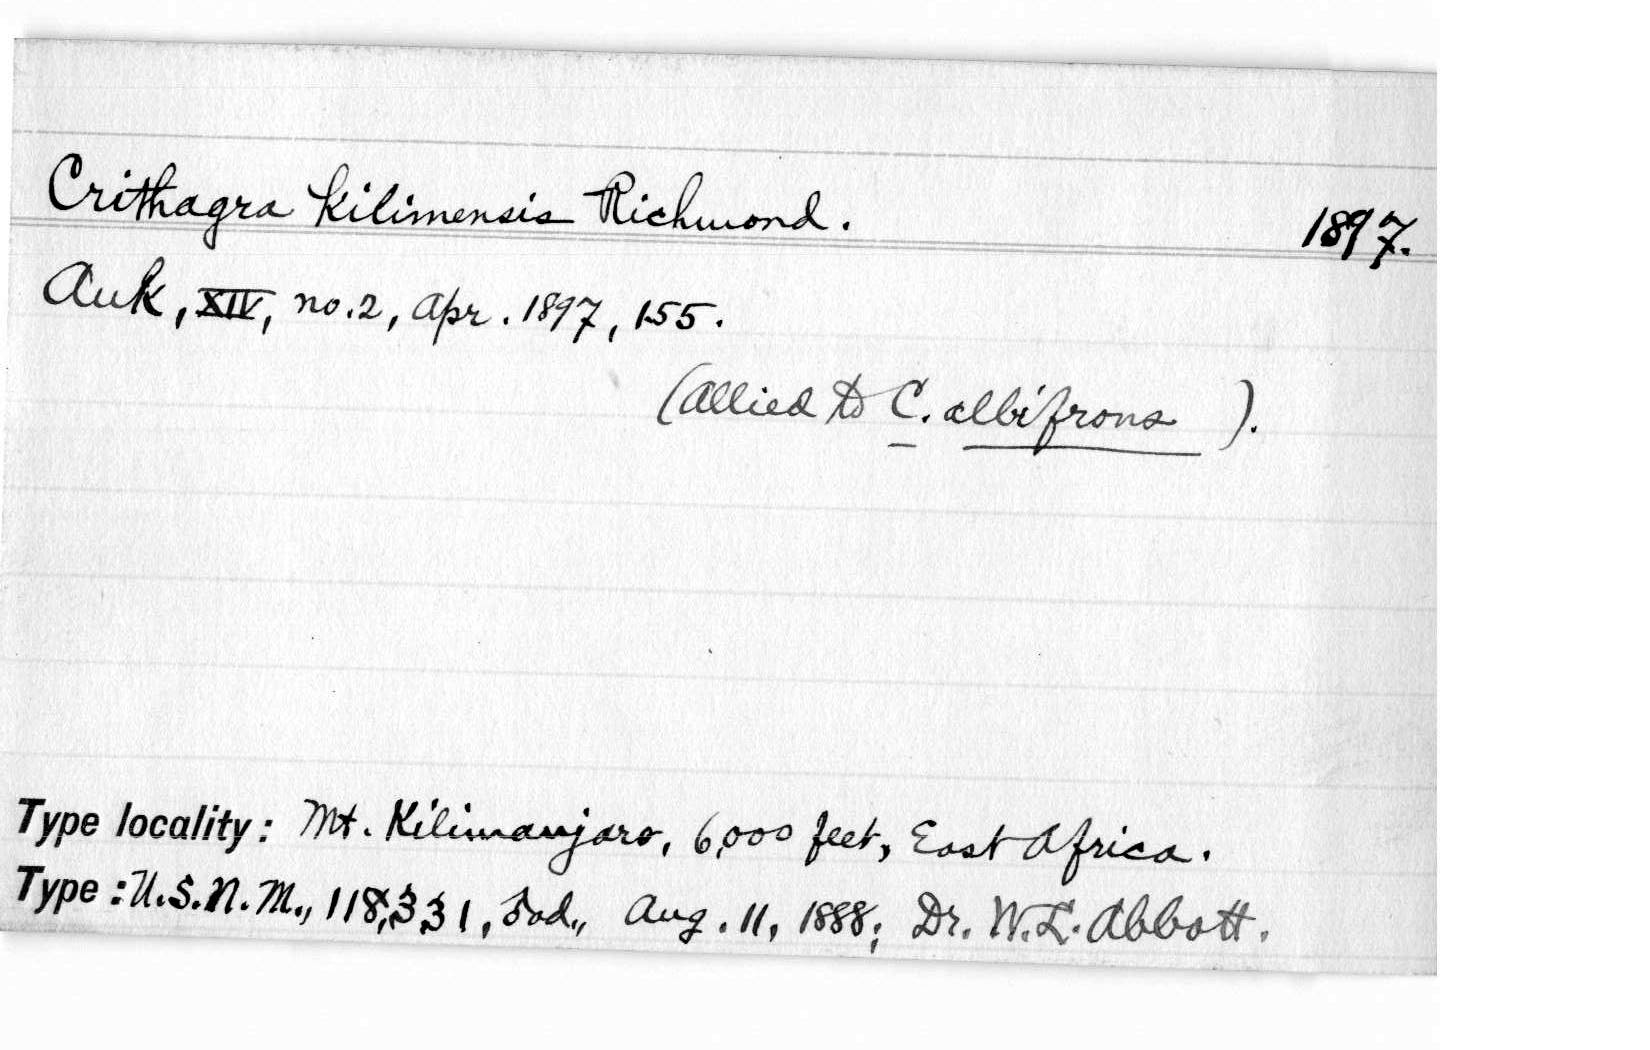 Crithagra kilimensis Richmond. 1897.
Auk, XIV, no. 2, Apr. 1897, 155.
(Allied to C. albifrons ).
Type locality: Mt. Kilimanjaro, 6,000 feet, East Africa.
Type: U.S.N.M., 118,331, ad., Aug. 11, 1888; Dr. W.L. Abbott.